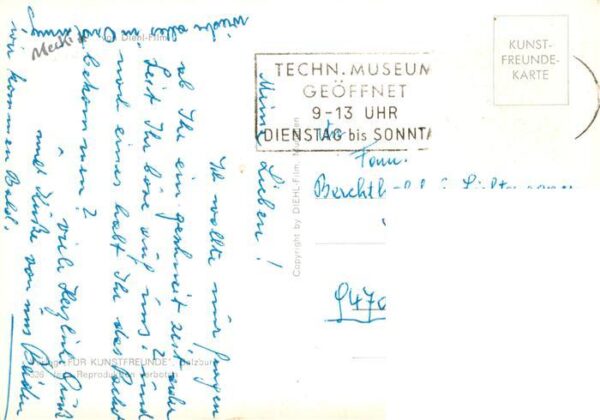 Meine Lieben!
Ich wollte nur fragen
ob Ihr eingeschneit seid oder
seit Ihr böse auf uns? und
noch eines habt Ihr das Packet
bekommen?
viele Herzliche Grüße
und Küße von uns Beiden
wir kommen Bald.
wieder alles in Ordnung
Mecki
Diehl-Film
TECHN. MUSEUM
GEÖFFNET
9-13 UHR
DIENSTAG bis SONNTA
KUNST-
FREUNDE-
KARTE
Copyright by DIEHL-Film, München
Fam.
"FÜR KUNSTFREUNDE",
Reproduktion verboten